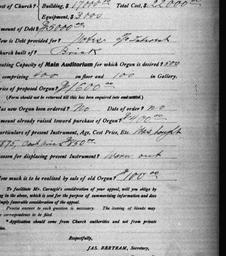 of Church? Building, $17000 Total Cost, $22,000
Equipment, $3000
Amount of Debt? $5000
How is Debt provided for?
Church built of? Brick
Seating Capacity of Main Auditorium for which Organ is desired? 500
comprising 400 on floor and 100 in Gallery.
Price of proposed Organ? $1600
(Form should not be returned till this has been inquired into and settled)
Has new Organ been ordered? No Date of order? no
Amount already raised toward purchase of Organ? $400
Particulars of present Instrument, Age, Cost Price, Etc. Was bought
1875, cost price $850
Reason for displacing present Instrument? Worn out
How much is to be realized by sale of old Organ? $100
To facilitate Mr. Carnegie's consideration of your appeal, will you oblige by
in the above, which is sent for the purpose of summarizing information and does
imply favorable consideration of the appeal.
Precise answer to each question is necessary. The issuing of blanks may
correspondence to be filed.
Application should come from Church authorities and not from private
Respectfully,
JAS. BERTRAM, Secretary,